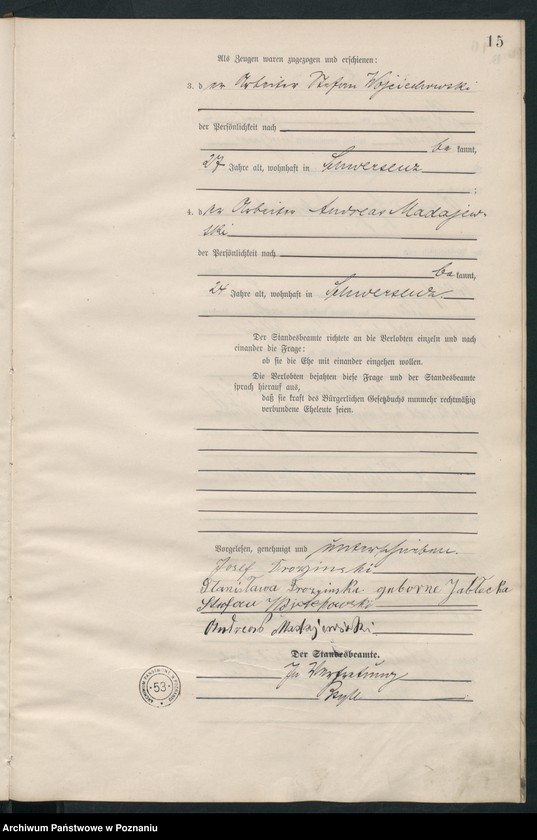 15
Als Zeugen waren zugezogen und erschienen:
3. der Arbeiter Stefan Wojciechowski
der Persönlichkeit nach
bekannt,
27 Jahre alt, wohnhaft in Schwersenz
;
4. der Arbeiter Andreas Madajew-
ski
der Persönlichkeit nach
bekannt,
24 Jahre alt, wohnhaft in Schwersenz
Der Standesbeamte richtete an die Verlobten einzeln und nach
einander die Frage:
ob sie die Ehe mit einander eingehen wollen.
Die Verlobten bejahten diese Frage und der Standesbeamte
sprach hierauf aus,
daß sie kraft des Bürgerlichen Gesetzbuchs nunmehr rechtmäßig
verbundene Eheleute seien.
Vorgelesen, genehmigt und unterschrieben.
Josef
Stanislawa geborne Jablecka
Stefan Wojciechowski
Andreas Madajewski
Der Standesbeamte.
In Vertretung
53
Archiwum Państwowe w Poznaniu